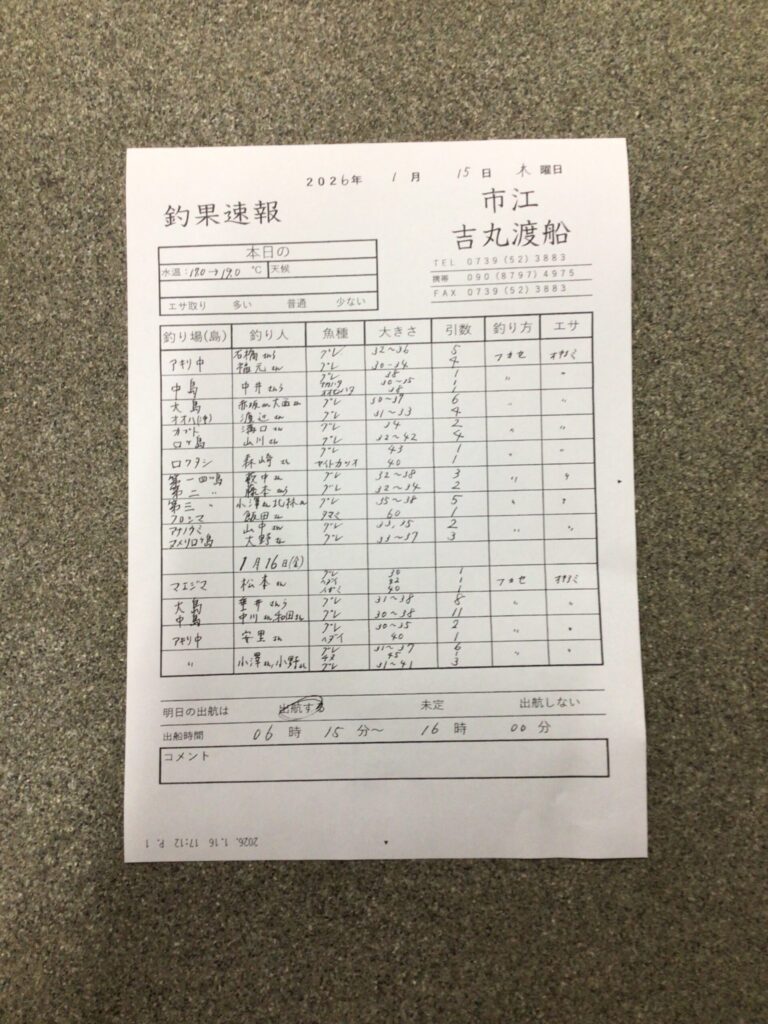 2026年 1月 15日 木曜日
釣果速報
市江
吉丸渡船
TEL 0739(52)3883
携帯 090(8797)4975
FAX 0739(52)3883
本日の
水温:18.0→19.0 ℃ 天候
エサ取り 多い 普通 少ない
釣り場(島) 釣り人 魚種 大きさ 引数 釣り方 エサ
アキリ中 石橋さん グレ 32〜36 5 フカセ オキアミ
福元さん グレ 30-34 4
中島 中井さん グレ 38 1 〃 〃
30〜35 1
38 1
大島 赤坂さん大西さん グレ 30〜37 6 〃 〃
オオバ(沖) 渡辺さん グレ 31〜33 4
カブト 溝口さん グレ 34 2 〃 〃
ロク島 山川さん グレ 32〜42 4
ロクタシ 森崎さん グレ 43 1 〃 〃
ヤイトカツオ 40 1
第一四ツ島 萩中さん グレ 32〜38 3 〃 〃
第二 〃 藤本さん グレ 32〜34 2
第三 〃 小澤さん北林さん グレ 35〜38 5 〃 〃
クロシマ 飯田さん タマミ 60 1
山中さん グレ 33,35 2 〃 〃
大野さん グレ 33〜37 3
1月16日(金)
マエジマ 松本さん グレ 30 1 フカセ オキアミ
1
イガミ 40 1
大島 筆井さん グレ 31〜38 8 〃 〃
中島 中川さん和田さん グレ 30〜38 11 〃 〃
アキリ中 安里さん グレ 30〜35 2 〃 〃
ヘダイ 40 1
〃 小澤さん,小野さん グレ 31〜37 6 〃 〃
45 1
グレ 31〜41 3
明日の出航は 出航する 未定 出航しない
出船時間 06時 15分〜 16時 00分
コメント
2026. 1.16 17:12 P. 1